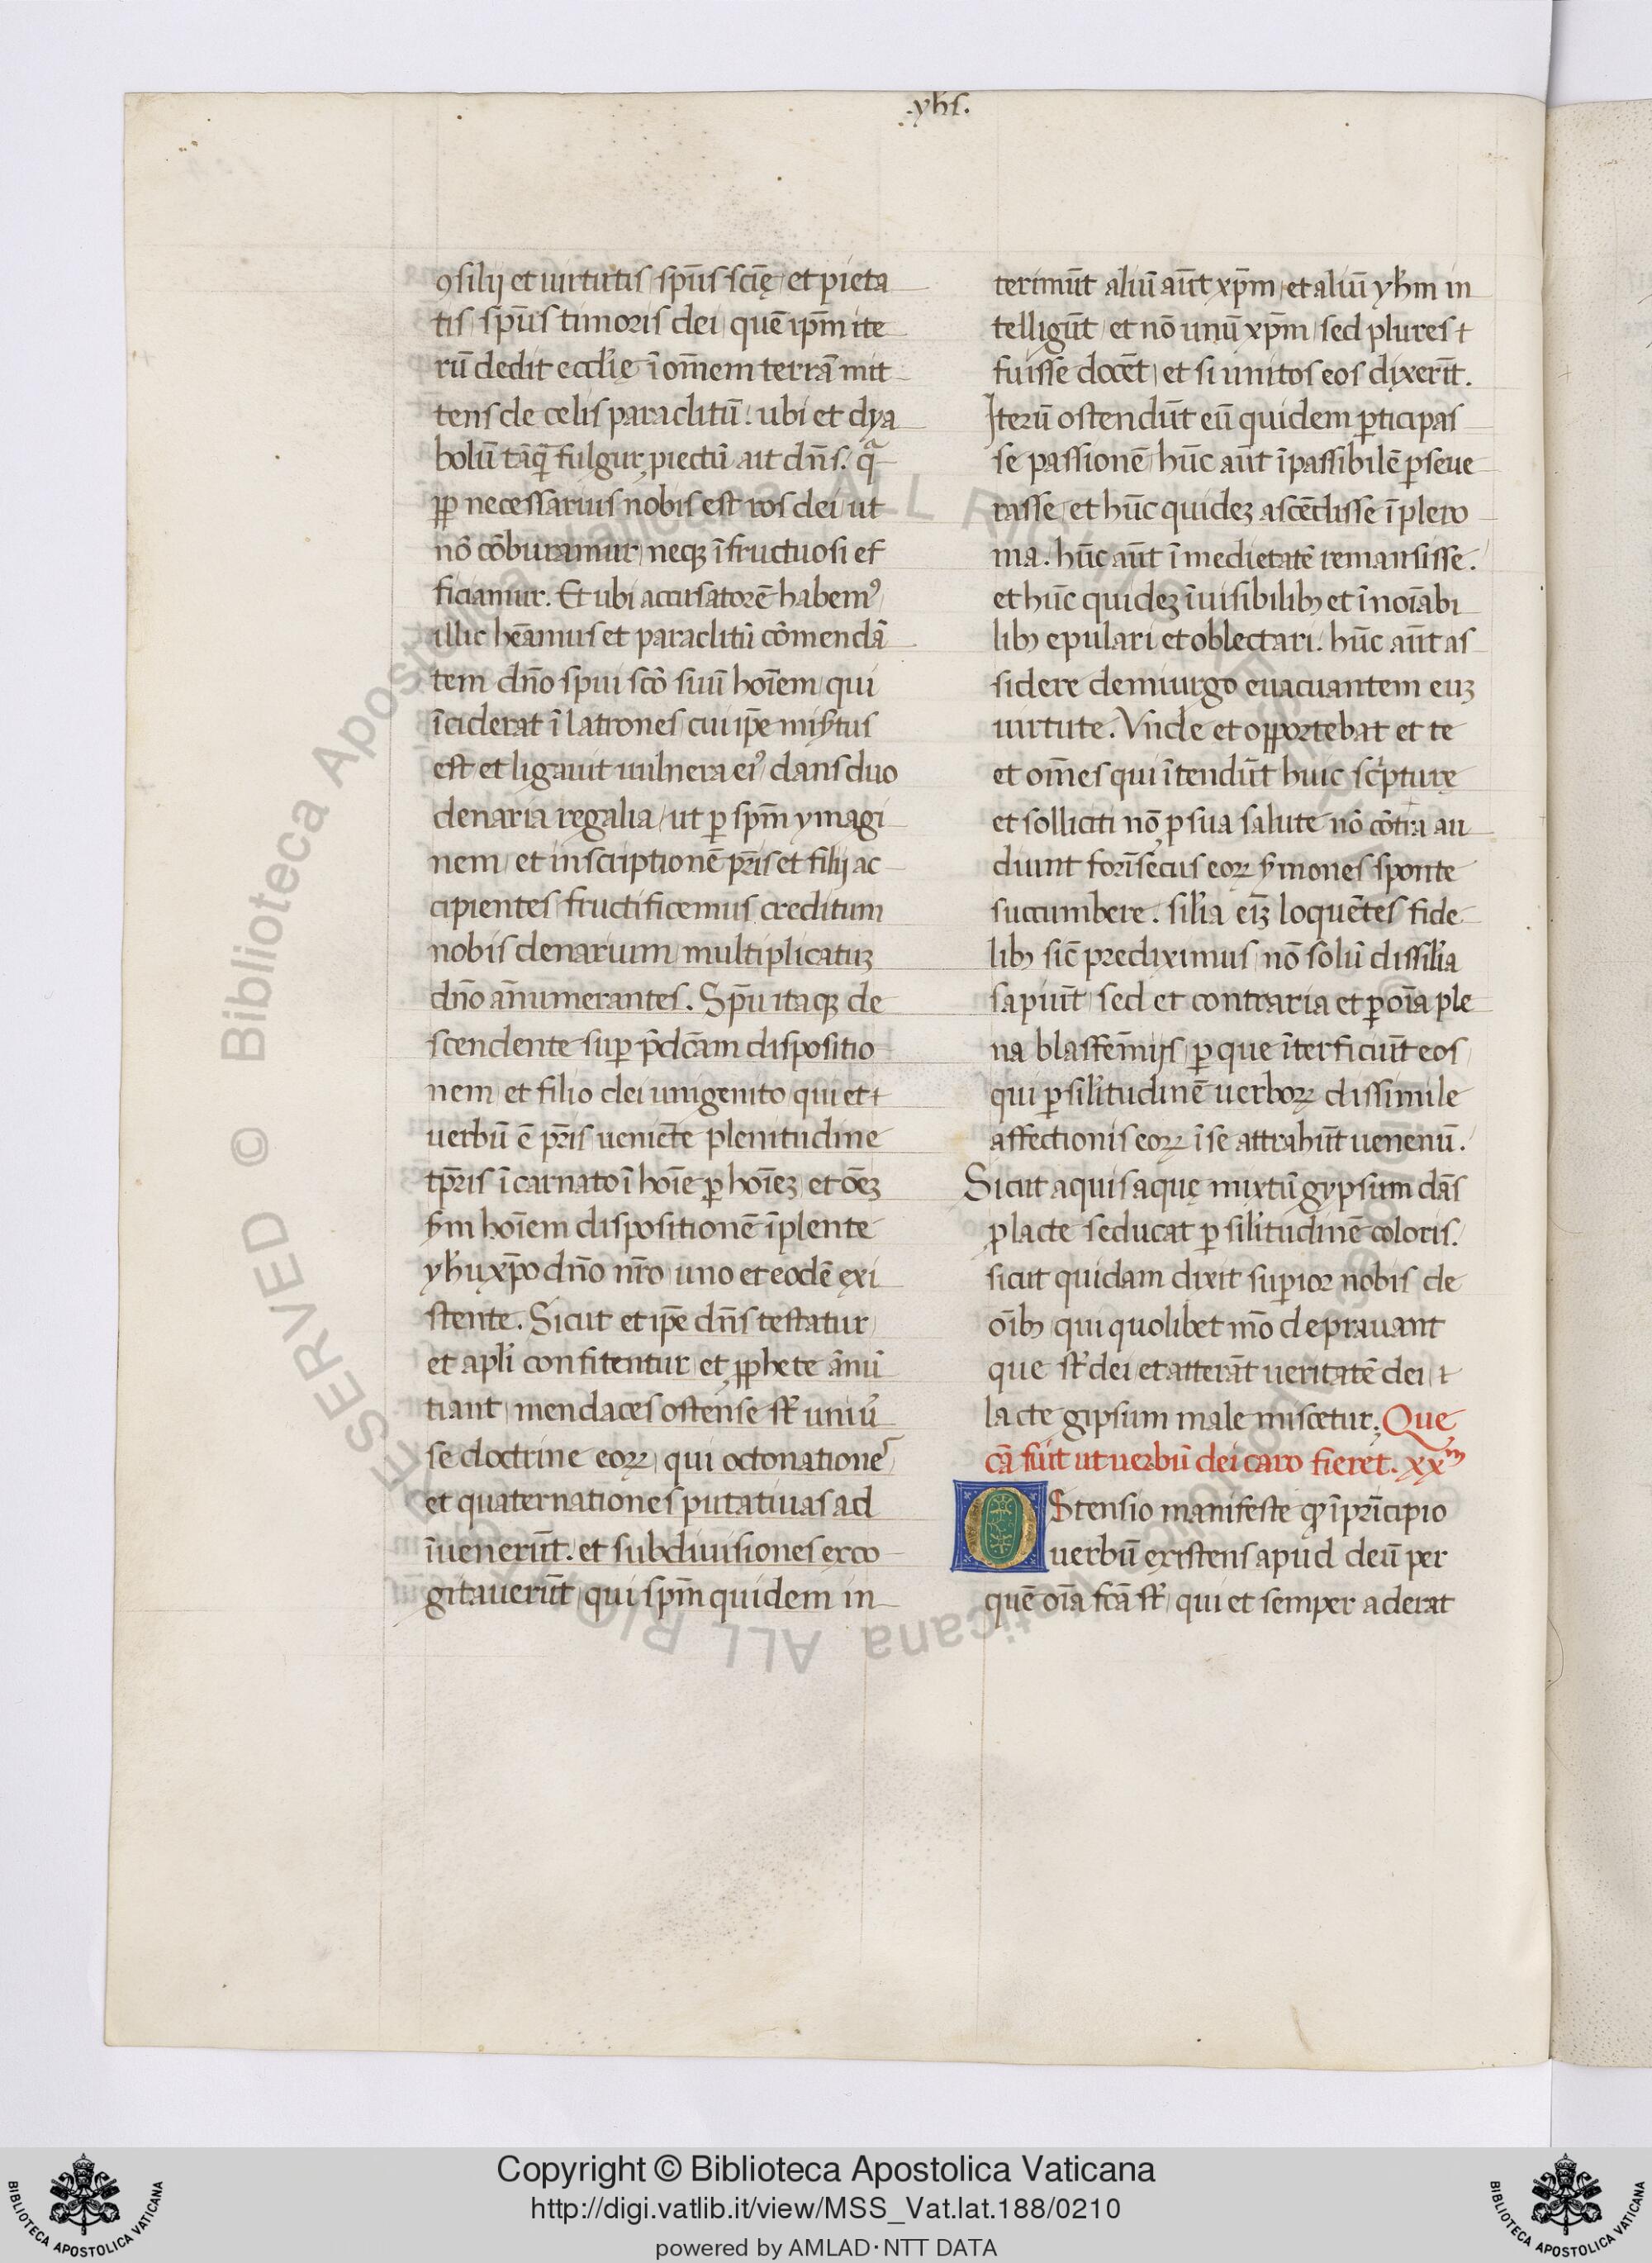 .yhs.
ꝯsilij et uirtutis sp̄us scię̄ et pieta
tis sp̄us timoris dei quē ip̄m ite
rū dedit eccl̄ię ī om̄em terrā mit
tens de celis paraclitū: ubi et dya
bolū tāq̄ fulgur ꝓiectū ait dn̄s. q̄
ꝓp necessarius nobis est ros dei ut
nō cōburamur neqꝫ īfructuosi ef
ficiamur. Et ubi accusatorē habemꝰ
illic hēamus et paraclitū cōmendā
tem dn̄o spui scō suū hoīem qui
īciderat ī latrones cui ip̄e mis̄tus
est et ligauit uulnera eiꝰ dans duo
denaria regalia ut ꝑ spm̄ ymagi
nem et inscriptionē pr̄is et filij ac
cipientes fructificemus creditum
nobis denarium multiplicatuꝫ
dn̄o ānumerantes. Sp̄u itaqꝫ de
scendente suꝑ p̄dc̄am dispositio
nem et filio dei unigenito qui et
uerbū ē pr̄is ueniēte plenitudine
tp̄ris īcarnato ī hoīe ꝑ hoīeꝫ et ōeꝫ
s̄m hoīem dispositionē īplente
yh̄u xp̄o dn̄o nr̄o uno et eodē exi
stente. Sicut et ip̄e dn̄s testatur
et apl̄i confitentur et ꝓphete ānū
tiant mendaces ostense st̄ uniū
se doctrine eoꝝ qui octonationes
et quaternationes putatiuas ad
īuenerūt. et subdiuisiones exco
gitauerūt qui spm̄ quidem in
terimūt aliū aūt xp̄m et aliū yh̄m in
telligūt et nō unū xp̄m sed plures
fuisse docēt et si unitos eos dixerīt.
Iterū ostendūt eū quidem ꝑticipas
se passionē hūc aūt īpassibilē ꝑseue
rasse et hūc quideꝫ ascēdisse ī plero
ma. hūc aūt ī medietatē remansisse.
et hūc quideꝫ īuisibilibꝫ et īnoīabi
libꝫ epulari et oblectari. hūc aūt as
sidere demiurgo euacuantem euꝫ
uirtute. Vnde et opportebat et te
et om̄es qui ītendūt huic sc̄pturę
et solliciti nō ꝓ sua salute nō cōtra au
diunt forīsecus eoꝝ s̄mones sponte
succumbere. sil̄ia eiꝫ loquētes fide
libꝫ sic̄ prediximus nō solū dissil̄ia
sapiūt sed et contraria et ꝑ oīa ple
na blasfēmijs ꝑ que īterficiūt eos
qui ꝑ sil̄itudinē uerboꝝ dissimile
affectionis eoꝝ ī se attrahūt uenenū.
Sicut aquis aquę mixtū gypsum dās
ꝓ lacte seducat ꝑ sil̄itudinē coloris.
sicut quidam dixit suꝑior nobis de
oīb qui quolibet mō deprauant
que st̄ dei et atterāt ueritatē dei ī
lacte gipsum male miscetur. Que
cā fuit ut uerbū dei caro fieret. xxᵐ
OStensio manifeste ꝙ ī prīcipio
uerbū existens apud deū per
quē oīa fc̄a st̄ qui et semper aderat
© Biblioteca Apostolica Vaticana ALL RIGHTS RESERVED
Copyright © Biblioteca Apostolica Vaticana
http://digi.vatlib.it/view/MSS_Vat.lat.188/0210
powered by AMLAD·NTT DATA
BIBLIOTECA APOSTOLICA VATICANA
BIBLIOTECA APOSTOLICA VATICANA